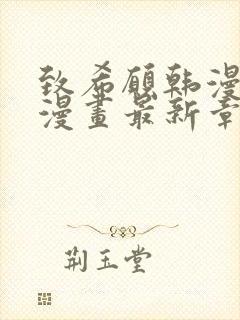 致希愿韩漫
漫畫最新章
荆玉堂